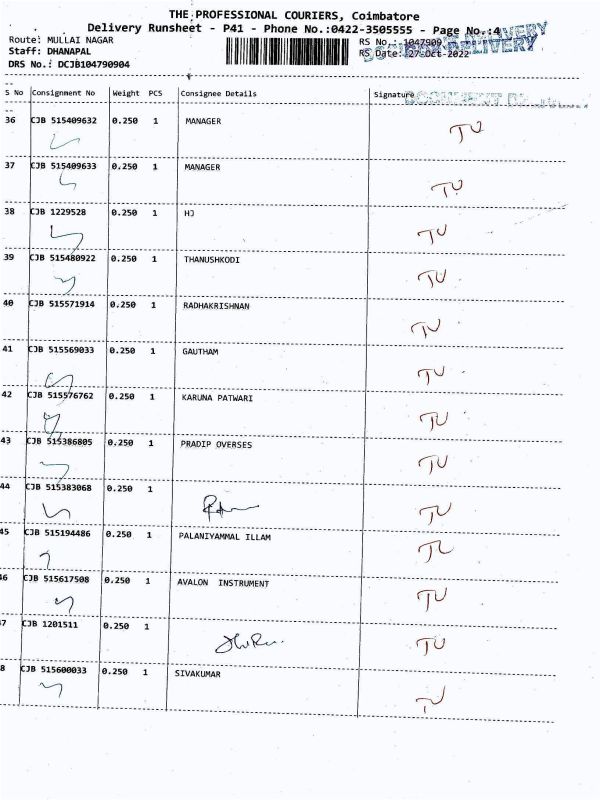 THE PROFESSIONAL COURIERS, Coimbatore
Delivery Runsheet - P41 - Phone No.:0422-3505555 - Page No.:4
Route: MULLAI NAGAR
RS No.: 1047909
Staff: DHANAPAL
RS Date: 27-Oct-2022
DRS No.: DCJB104790904
S No Consignment No Weight PCS Consignee Details Signature
36 CJB 515409632 0.250 1 MANAGER TU
37 CJB 515409633 0.250 1 MANAGER TU
38 CJB 1229528 0.250 1 HJ TU
39 CJB 515480922 0.250 1 THANUSHKODI TU
40 CJB 515571914 0.250 1 RADHAKRISHNAN TU
41 CJB 515569033 0.250 1 GAUTHAM TU
42 CJB 515576762 0.250 1 KARUNA PATWARI TU
43 CJB 515386805 0.250 1 PRADIP OVERSES TU
44 CJB 515383068 0.250 1 TU
45 CJB 515194486 0.250 1 PALANIYAMMAL ILLAM TU
46 CJB 515617508 0.250 1 AVALON INSTRUMENT TU
7 CJB 1201511 0.250 1 TU
8 CJB 515600033 0.250 1 SIVAKUMAR TU